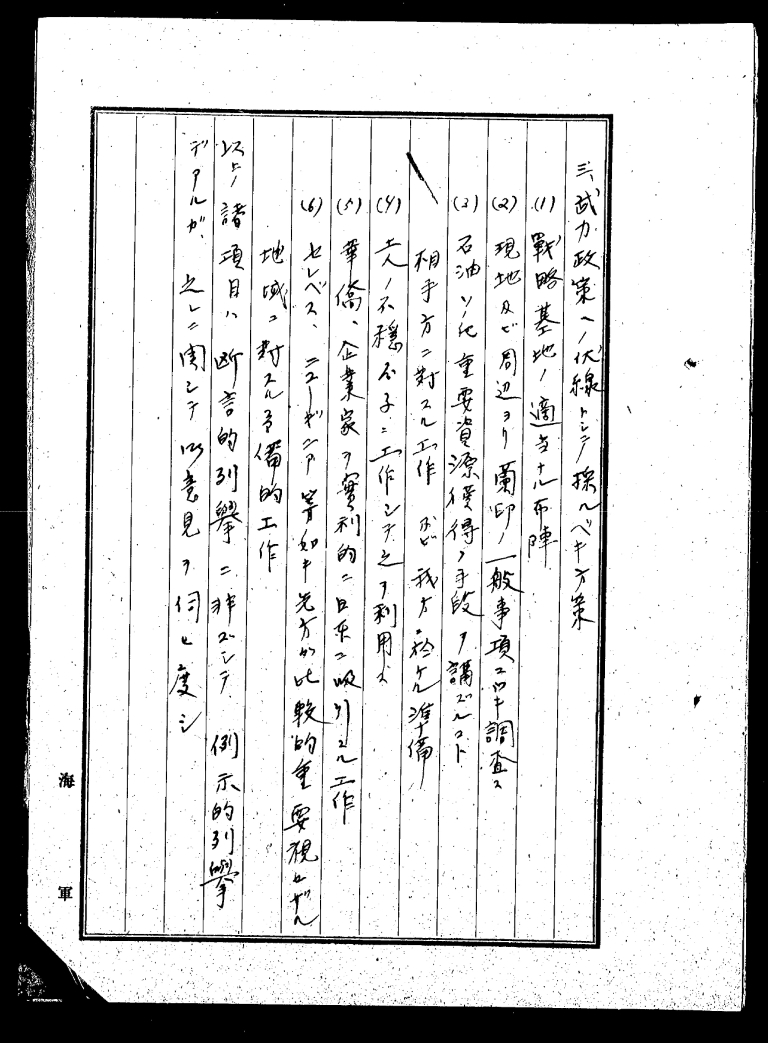 三、武力政策ヘノ伏線トシテ採ルベキ方策
(1) 戰略基地ノ適当ナル布陣
(2) 現地及ビ周辺ヨリ蘭印ノ一般事項ニツキ調査ス
(3) 石油ソノ他重要資源獲得ノ手段ヲ講ズルコト
相手方ニ対スル工作 及ビ 我方ニ於ケル準備
(4) 土人ノ不穏分子ニ工作シテ之ヲ利用ス
(5) 華僑、企業家ヲ實利的ニ日本ニ吸引スル工作
(6) セレベス、ニューギニア等ノ如キ先方ガ比較的重要視セザル
地域ニ對スル予備的工作
以上ノ諸項目ハ断言的列擧ニ非ズシテ 例示的列擧
デアルガ、之レニ関シテ御意見ヲ伺ヒ度シ
海軍